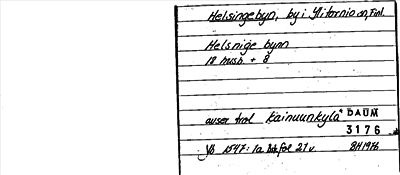 Helsingebyn, by i Ylitornio sn, Finl.
Helsnige bynn
18 husb. + 8
avser trol Kainuunkylä* DAUM
3176
VB 1547: 1a fol 21 v. BH 1976